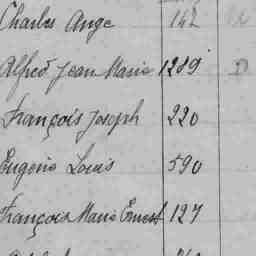 Charles Ange 142
Alfred Jean Marie 1289 D
François Joseph 220
Eugène Louis 590
François Marie Ernest 127